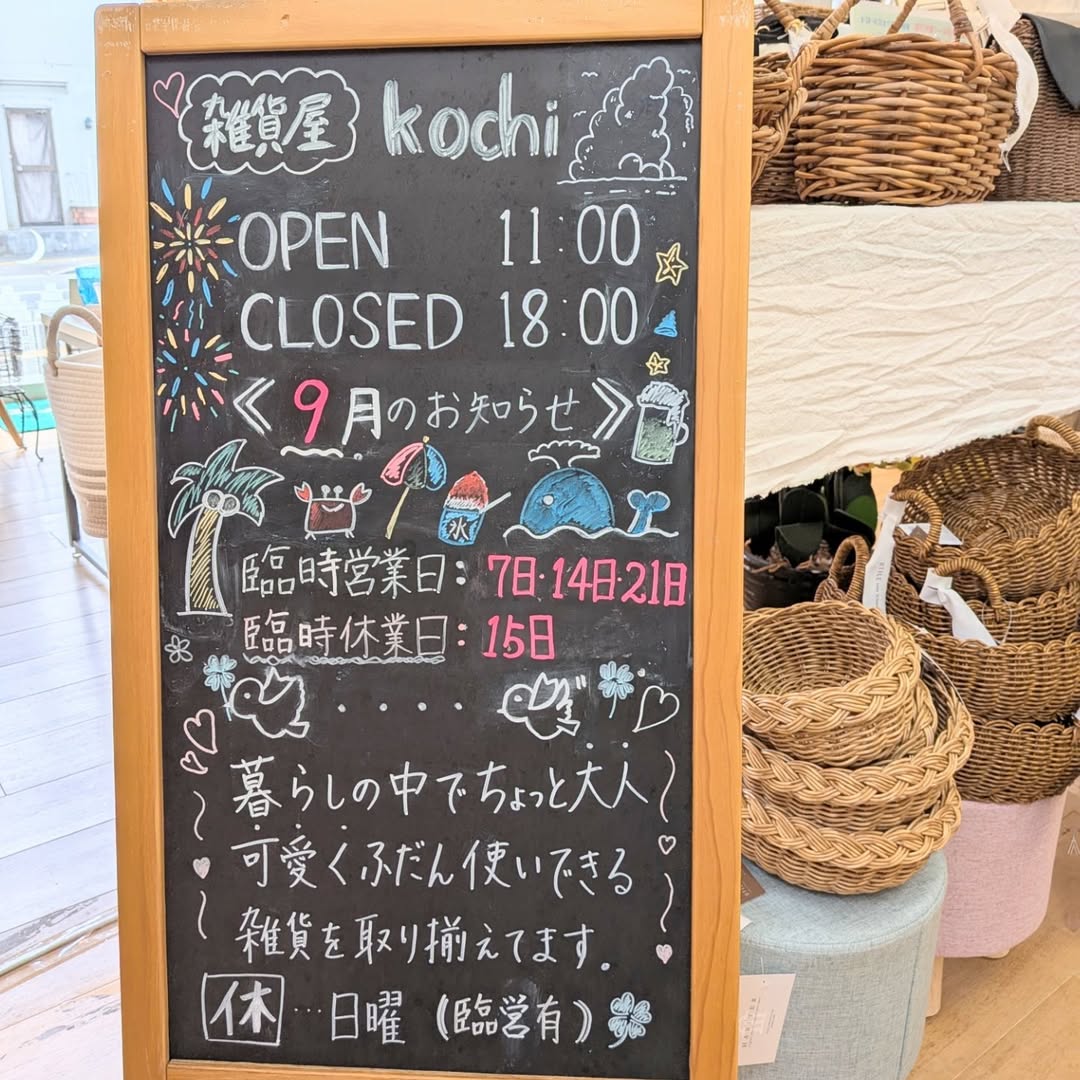 雑貨屋 kochi
OPEN 11:00
CLOSED 18:00
《9月のお知らせ》
氷
臨時営業日: 7日・14日・21日
臨時休業日: 15日
・・・・
暮らしの中でちょっと大人
可愛くふだん使いできる
雑貨を取り揃えてます。
休…日曜(臨営有)